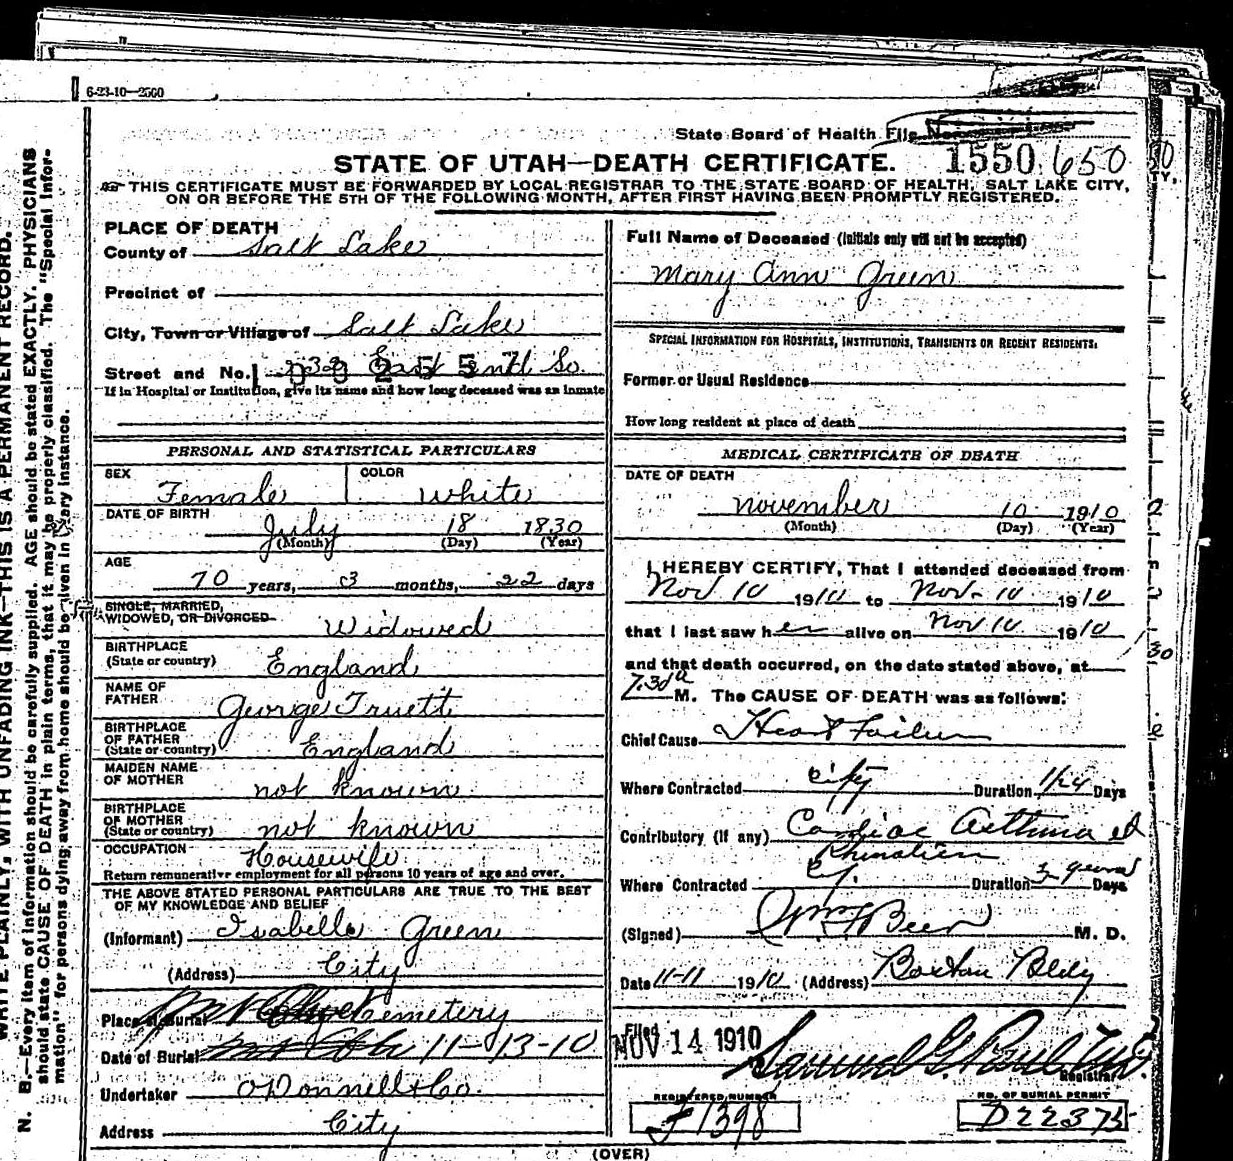 6-23-10—2500
State Board of Health File No.
STATE OF UTAH—DEATH CERTIFICATE. 1550 650
THIS CERTIFICATE MUST BE FORWARDED BY LOCAL REGISTRAR TO THE STATE BOARD OF HEALTH, SALT LAKE CITY,
ON OR BEFORE THE 5TH OF THE FOLLOWING MONTH, AFTER FIRST HAVING BEEN PROMPTLY REGISTERED.
WRITE PLAINLY, WITH UNFADING INK—THIS IS A PERMANENT RECORD.
N. B.—Every item of information should be carefully supplied. AGE should be stated EXACTLY. PHYSICIANS
should state CAUSE OF DEATH in plain terms, that it may be properly classified. The "Special Infor-
mation" for persons dying away from home should be given in every instance.
PLACE OF DEATH
County of Salt Lake
Precinct of
City, Town or Village of Salt Lake
Street and No. 232 East 2nd So.
If in Hospital or Institution, give its name and how long deceased was an inmate
PERSONAL AND STATISTICAL PARTICULARS
SEX Female COLOR White
DATE OF BIRTH July 18 1830
(Month) (Day) (Year)
AGE 70 years, 3 months, 22 days
SINGLE, MARRIED,
WIDOWED, OR DIVORCED Widowed
BIRTHPLACE
(State or country) England
NAME OF
FATHER George Truett
BIRTHPLACE
OF FATHER
(State or country) England
MAIDEN NAME
OF MOTHER not known
BIRTHPLACE
OF MOTHER
(State or country) not known
OCCUPATION Housewife
Return remunerative employment for all persons 10 years of age and over.
THE ABOVE STATED PERSONAL PARTICULARS ARE TRUE TO THE BEST
OF MY KNOWLEDGE AND BELIEF
(Informant) Isabelle Green
(Address) City
Place of Burial Mt Olivet Cemetery
Date of Burial 11-13-10
Undertaker O'Donnell & Co.
Address City
Full Name of Deceased (Initials only will not be accepted)
Mary Ann Green
SPECIAL INFORMATION FOR HOSPITALS, INSTITUTIONS, TRANSIENTS OR RECENT RESIDENTS.
Former or Usual Residence
How long resident at place of death
MEDICAL CERTIFICATE OF DEATH
DATE OF DEATH
November 10 1910
(Month) (Day) (Year)
I HEREBY CERTIFY, That I attended deceased from
Nov 10 1910 to Nov. 10 1910
that I last saw her alive on Nov 10 1910
and that death occurred, on the date stated above, at
7.30 a M. The CAUSE OF DEATH was as follows:
Chief Cause Heart Failure
Where Contracted City Duration 1/24 Days
Contributory (if any) Cardiac Asthma
Where Contracted Duration 3 years Days
(Signed) Wm F Beer M. D.
Date 11-11 1910 (Address) Boston Bldg
Filed
NOV 14 1910 Samuel G. Paul
Registrar
REGISTERED NUMBER
1398
NO. OF BURIAL PERMIT
D22375
(OVER)